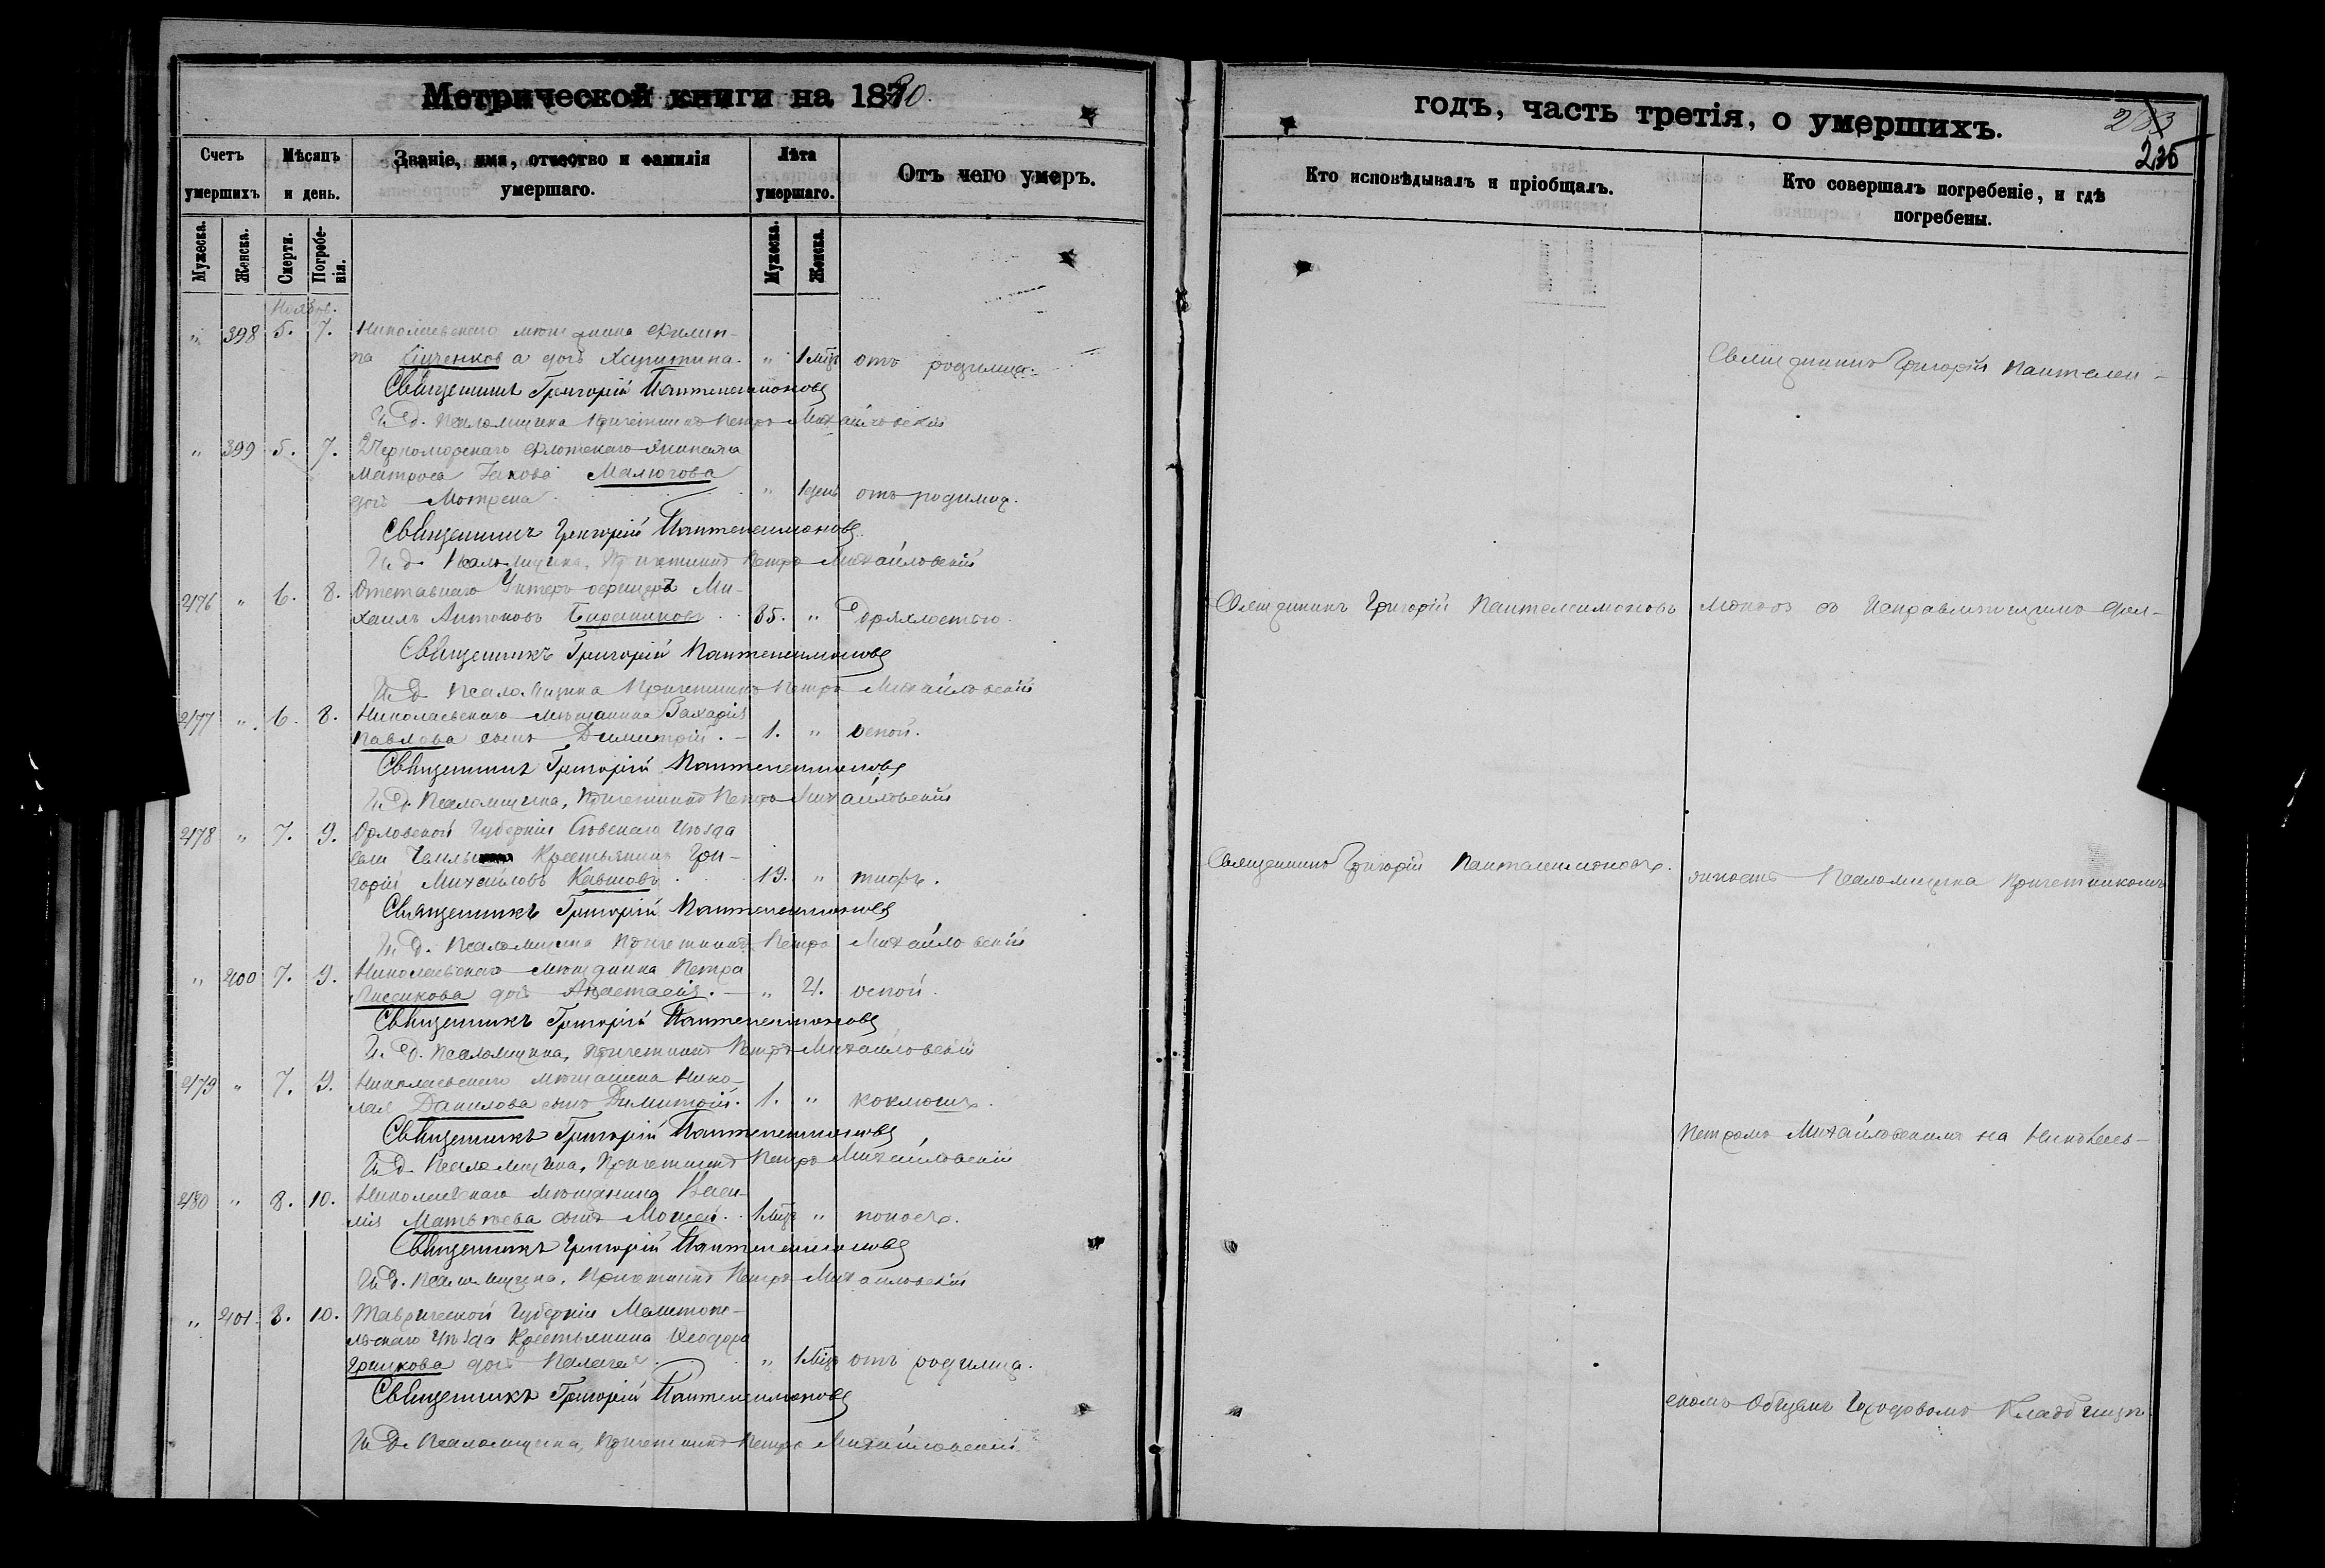 Метрической книги на 1880.
Счетъ умершихъ
Мѣсяцъ и день.
Званіе, имя, отчество и фамилія умершаго.
Лѣта умершаго.
Отъ чего умеръ.
Мужеска.
Женска.
Смерти.
Погребенія.
Мужеска.
Женска.
" 398 5. 7. Николаевскаго мѣщанина Филип-
па а дочь Харитина. " 1 мѣс отъ родимца.
Священникъ Григорій Пантелеимоновъ
И. Д. Псаломщика Причетникъ Петръ Михайловскій
" 399 5. 7. Черноморскаго Флотскаго Экипажа
Матроса Іакова Малюгова
дочь Мотрена " 1 день отъ родимца.
Священникъ Григорій Пантелеимоновъ
И. Д. Псаломщика, Причетникъ Петръ Михайловскій
476 " 6. 8. Отставнаго Унтеръ-офицеръ Ми-
хаилъ Антоновъ 85. " Дряхлостью.
Священникъ Григорій Пантелеимоновъ
И. Д. Псаломщика Причетникъ Петръ Михайловскій
477 " 6. 8. Николаевскаго мѣщанина Захарія
Павлова сынъ Димитрій. 1. " оспой.
Священникъ Григорій Пантелеимоновъ
И. Д. Псаломщика, Причетникъ Петръ Михайловскій
478 " 7. 9. Орловской Губерніи Сѣвскаго Уѣзда
села Крестьянинъ Гри-
горій Михайловъ 19. " тифъ.
Священникъ Григорій Пантелеимоновъ
И. Д. Псаломщика Причетникъ Петръ Михайловскій
" 400 7. 9. Николаевскаго мѣщанина Петра
Лисикова дочь Анастасія. " 4. оспой.
Священникъ Григорій Пантелеимоновъ
И. Д. Псаломщика, Причетникъ Петръ Михайловскій
479 " 7. 9. Николаевскаго мѣщанина Нико-
лая Данилова сынъ Димитрій. 1. " коклюшъ.
Священникъ Григорій Пантелеимоновъ
И. Д. Псаломщика, Причетникъ Петръ Михайловскій
480 " 8. 10. Николаевскаго мѣщанина Васи-
лія Матвѣева сынъ Моисей. 1 мѣс " поносъ.
Священникъ Григорій Пантелеимоновъ
И. Д. Псаломщика, Причетникъ Петръ Михайловскій
" 401. 8. 10. Таврической Губерніи Мелитопо-
льскаго Уѣзда Крестьянина Ѳеодора
Грицкова дочь Пелагея " 1 мѣс отъ родимца.
Священникъ Григорій Пантелеимоновъ
И. Д. Псаломщика, Причетникъ Петръ Михайловскій
годъ, часть третія, о умершихъ.
283
235
Кто исповѣдывалъ и пріобщалъ.
Кто совершалъ погребеніе, и гдѣ погребены.
Священникъ Григорій Пантелеи-
Священникъ Григорій Пантелеимоновъ
моновъ съ Исправляющимъ дол-
Священникъ Григорій Пантелеимоновъ.
жность Псаломщика Причетникомъ
Петромъ Михайловскимъ на Николаев-
скомъ Общемъ Городовомъ Кладбищѣ